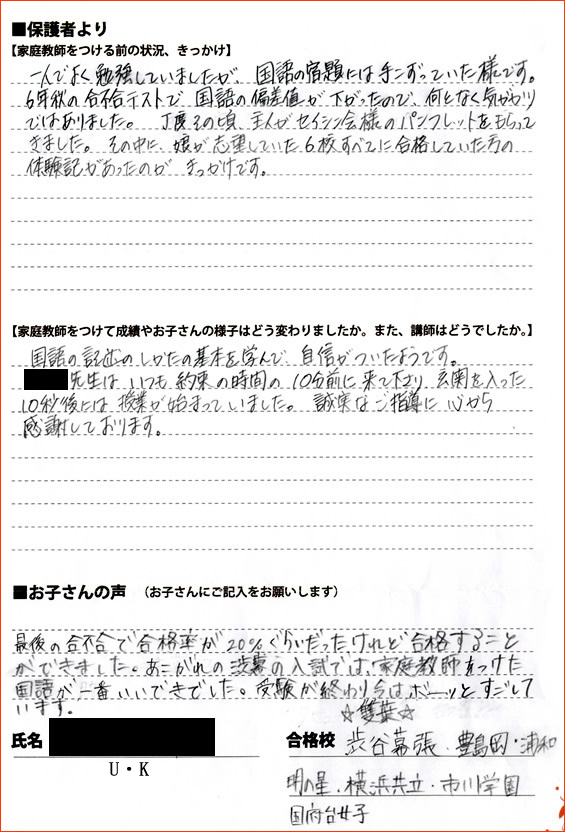 ■保護者より
【家庭教師をつける前の状況、きっかけ】
一人でよく勉強していましたが、国語の宿題には手こずっていた様です。
6年秋の合不合テストで国語の偏差値が下がったので、何となく気がかり
ではありました。丁度その頃、主人がセイシン会様のパンフレットをもらって
きました。その中に、娘が志望していた6校すべてに合格していた方の
体験記があったのが きっかけです。
【家庭教師をつけて成績やお子さんの様子はどう変わりましたか。また、講師はどうでしたか。】
国語の記述のしかたの基本を学んで、自信がついたようです。
先生は いつも 約束の時間の 10分前に来て下さり、玄関を入った
10秒後には 授業が始まっていました。誠実なご指導に 心から
感謝しております。
■お子さんの声 (お子さんにご記入をお願いします)
最後の合不合で合格率が20%ぐらいだったけれど合格すること
ができました。あこがれの渋幕の入試では、家庭教師をつけた
国語が一番いいできでした。受験が終わり今は、ボーッとすごして
います。
☆雙葉☆
氏名
U・K
合格校 渋谷幕張・豊島岡・浦和
明の星・横浜共立・市川学園
国府台女子